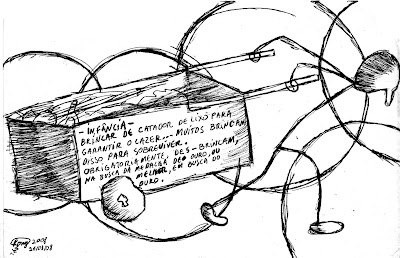 - INFÂNCIA -
BRINCAR DE CATADOR DE LIXO PARA
GARANTIR O LAZER... MUITOS BRINCAM
DISSO PARA SOBREVIVER.
OBRIGATORIAMENTE, DES-BRINCAM,
NA BUSCA DA MEDALHA DE OURO, OU
MELHOR, EM BUSCA DO
OURO.
2008